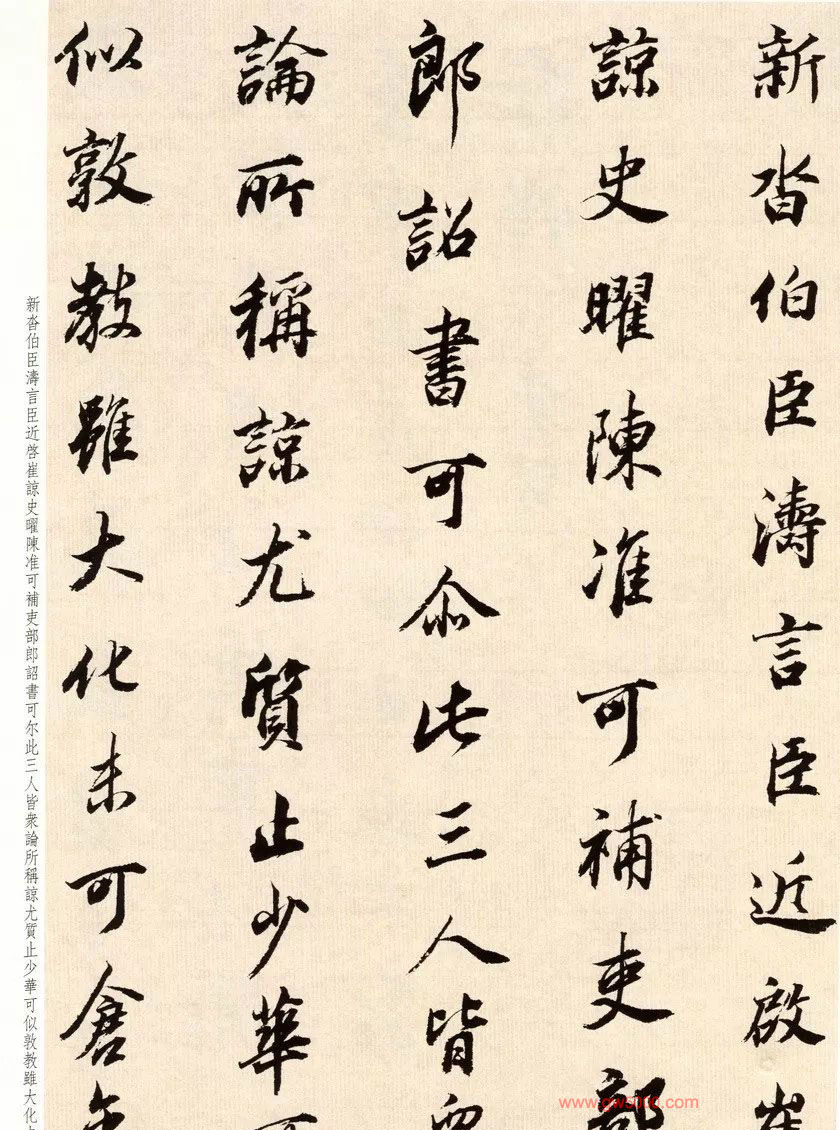 新沓伯臣濤言臣近啟崔
諒史曜陳准可補吏部
郎詔書可尒此三人皆
論所稱諒尤質止少華
似敦教雖大化未可倉
新沓伯臣濤言臣近啓崔諒史曜陳准可補吏部郎詔書可尔此三人皆衆論所稱諒尤質止少華可似敦教雖大化